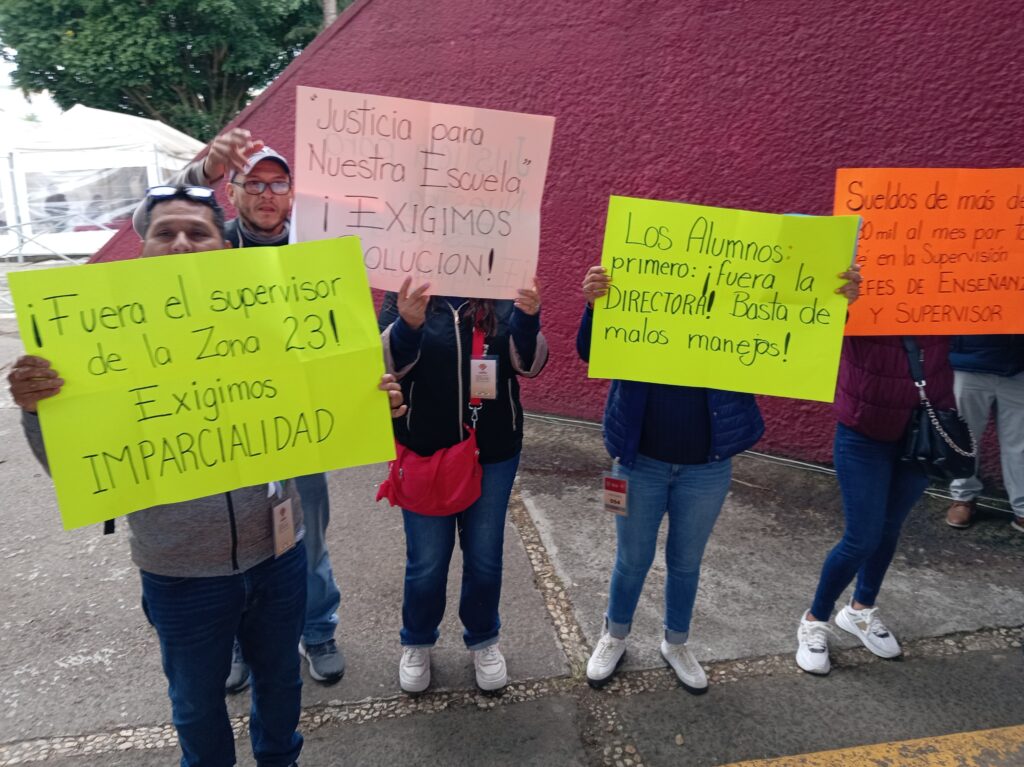 ¡Fuera el supervisor
de la Zona 23!
Exigimos
IMPARCIALIDAD
"Justicia para
Nuestra Escuela"
¡EXIGIMOS
OLUCION!
Los Alumnos:
primero: ¡fuera la
DIRECTORA! Basta de
malos manejos!
Sueldos de más de
0 mil al mes por
en la Supervisión
EFES DE ENSEÑANZ
Y SUPERVISOR